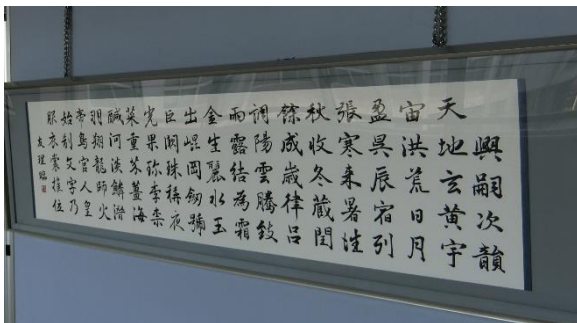 興嗣次韻
天地玄黃宇
宙洪荒日月
盈昃辰宿列
張寒来暑往
秋收冬蔵閏
餘成歳律呂
調陽雲騰致
雨露結為霜
金生麗水玉
出崐岡劒號
巨闕珠稱夜
光果珍李柰
菜重芥薑海
鹹河淡鱗潜
羽翔龍師火
帝鳥官人皇
始制文字乃
服衣裳推位
友理臨